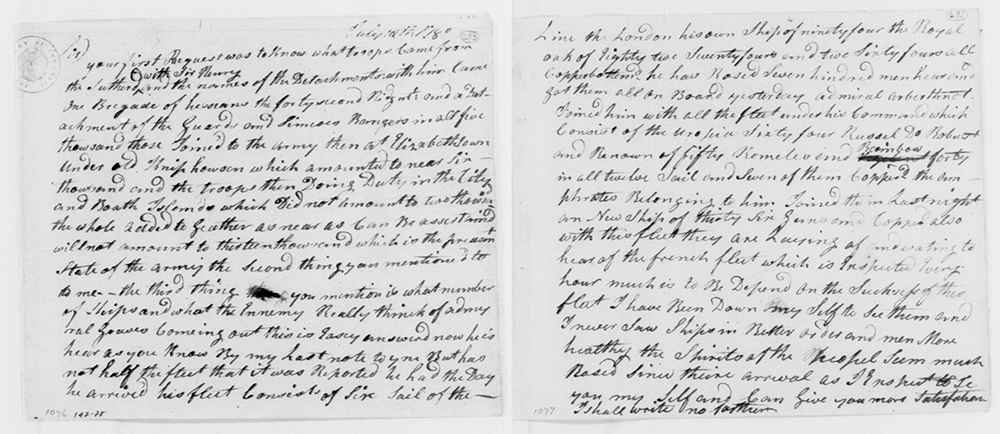 July 18th 178
Sir
your first Request was to Know what troops Came from
the Sutherd with Sir Henry
and the names of the Detachments with him Came
One Brigade of hesians the forty second Regnt and a Dat-
achment of the Guards and Simcoes Rangers in all five
thousand those Joined to the army then at Elizabethtown
Under old Kniphowsen which amounted to near Six
thousand and the troops then Doing Duty in the City
and Boath Islands which Did not amount to two thowsan
the whole added to Geather as near as Can Be assertained
will not amount to thirteen thowsand which is the preasant
State of the army the Second thing you mentioned to
to me - the third thing you mention is what number
of Ships and what the Innemy Really think of admy
ral Graves Comeing out this is Easey answerd now he is
hear as you Know By my last note to you But has
not half the fleet that it was Reported he had the Day
he arrived his fleet Consists of Six Sail of the
1076 192-75
Line the London his own Ship of ninety four the Royal
oak of Eighty two Seventy fours and two Sixty fours all
Copperbottmd he has Rased Seven hundred men hear and
got them all on Board yesterday admiral arberthnot
Joined him with all the fleet under his Command which
Consist of the Uropia Sixty four Russel Do Robust
and Renown of fifty Romelus and Rainbow forty
in all twelve Sail and Seven of them Copperd the am-
phrates Belonging to him Joined them Last night
an New Ship of thirty Six Guns and Copperd also
with this fleet they are
hear of the french fleet which is Inspected Every
hour much is to Be Depend on the Sucksess of this
fleat I have Been Down my Self to See them and
I never Saw Ships in Better order and men More
healthy the Spirits of the peopel Seem much
Rased Since theire arrival as I Inspect to Se
you my Self and Can Give you more Satisfation
I shall write no farther
1077